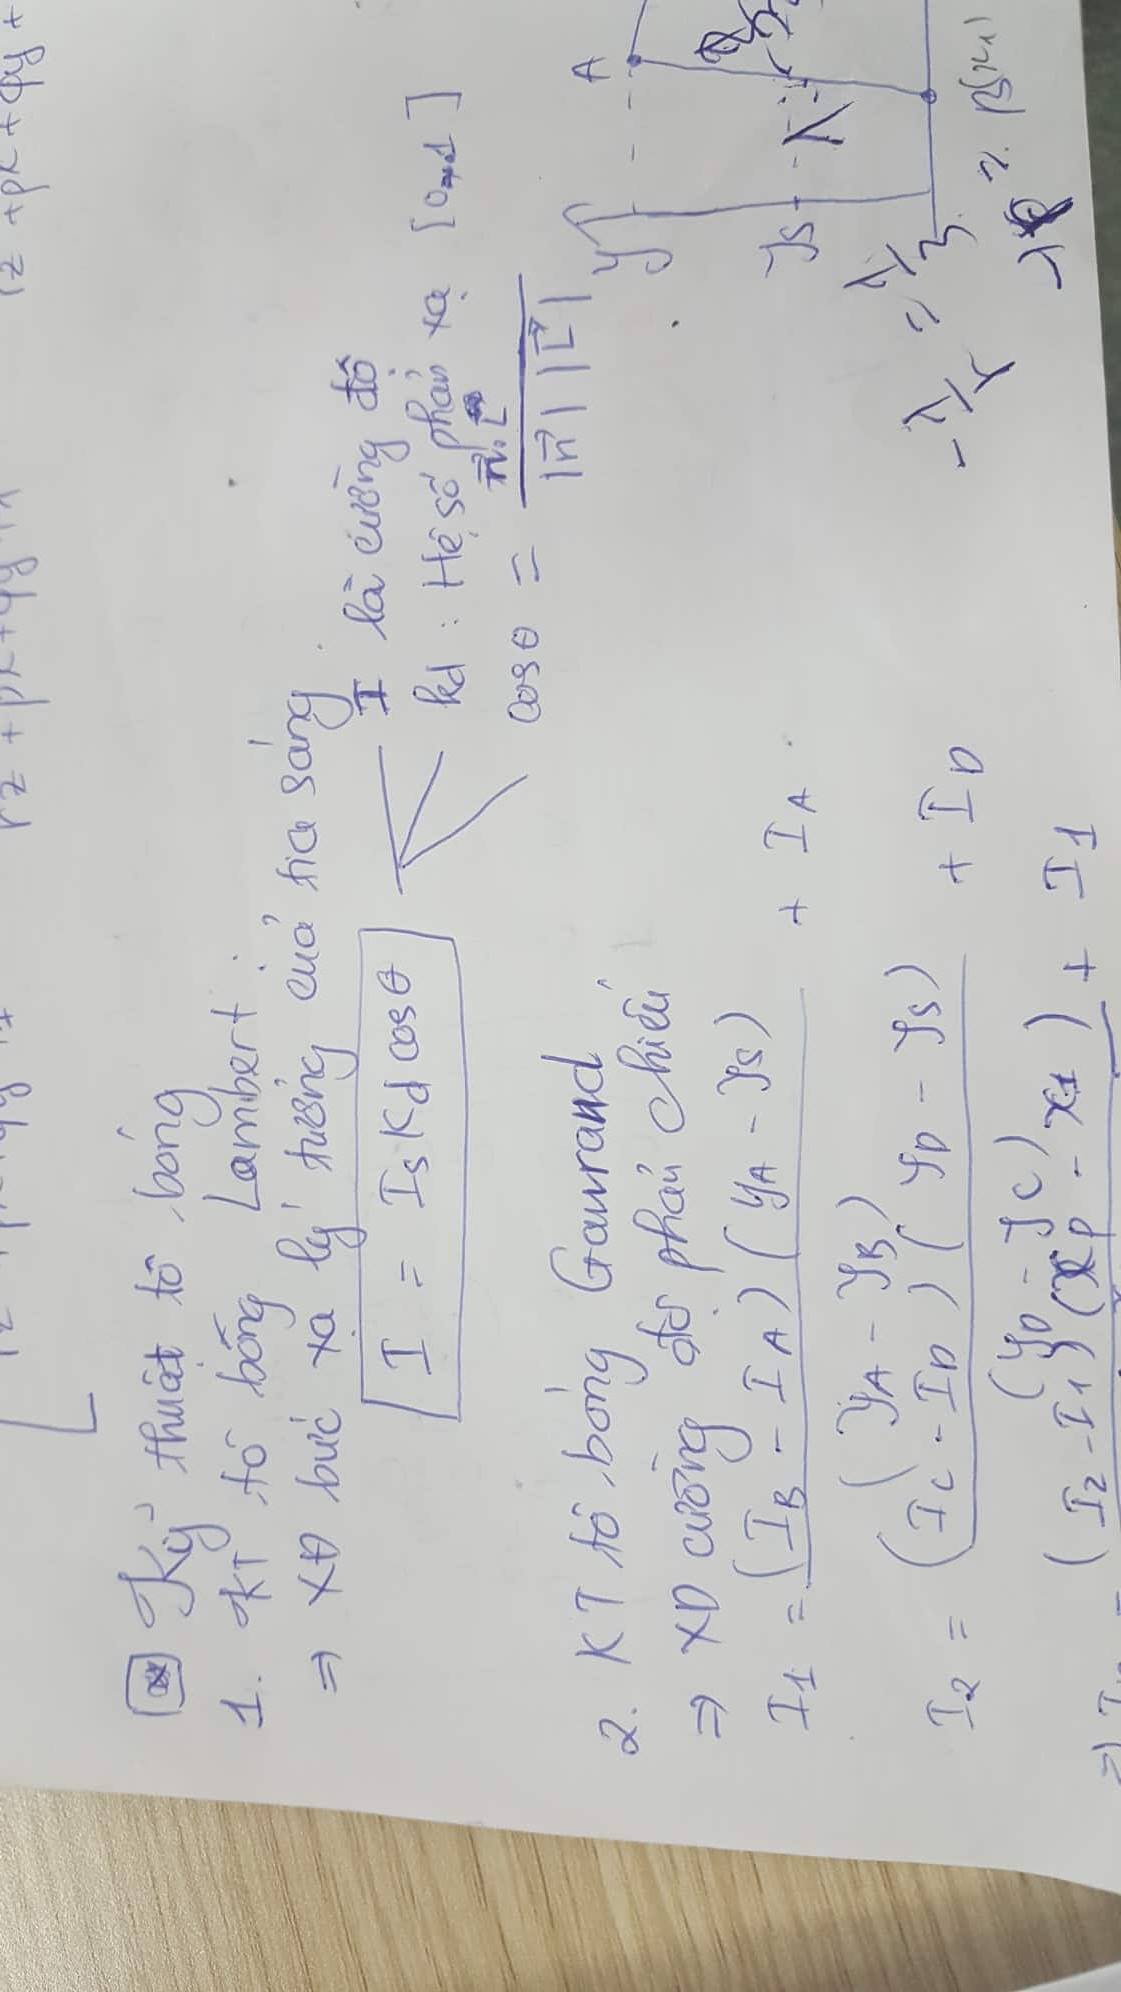 rz + px + qy + 1
rz + px + qy + 1
rz + px + qy +
Kỹ thuật tô bóng
1. KT tô bóng Lambert :
⇒ XĐ bức xạ lý tưởng của tia sáng.
I = Is Kd cos θ
I là cường độ
kd : Hệ số phản xạ [0→1]
cos θ = n⃗.L⃗ / |n⃗| |L⃗|
2. KT tô bóng Gaurand
⇒ XD cường độ phản chiếu
I1 = (IB - IA) (yA - yS) / (yA - yB) + IA
I2 = (IC - ID) (yD - yS) / (yD - yC) + ID
(I2 - I1) (xp - x1) + I1
y
A
yS
λ
-λ/r = λ/3
B(x1)